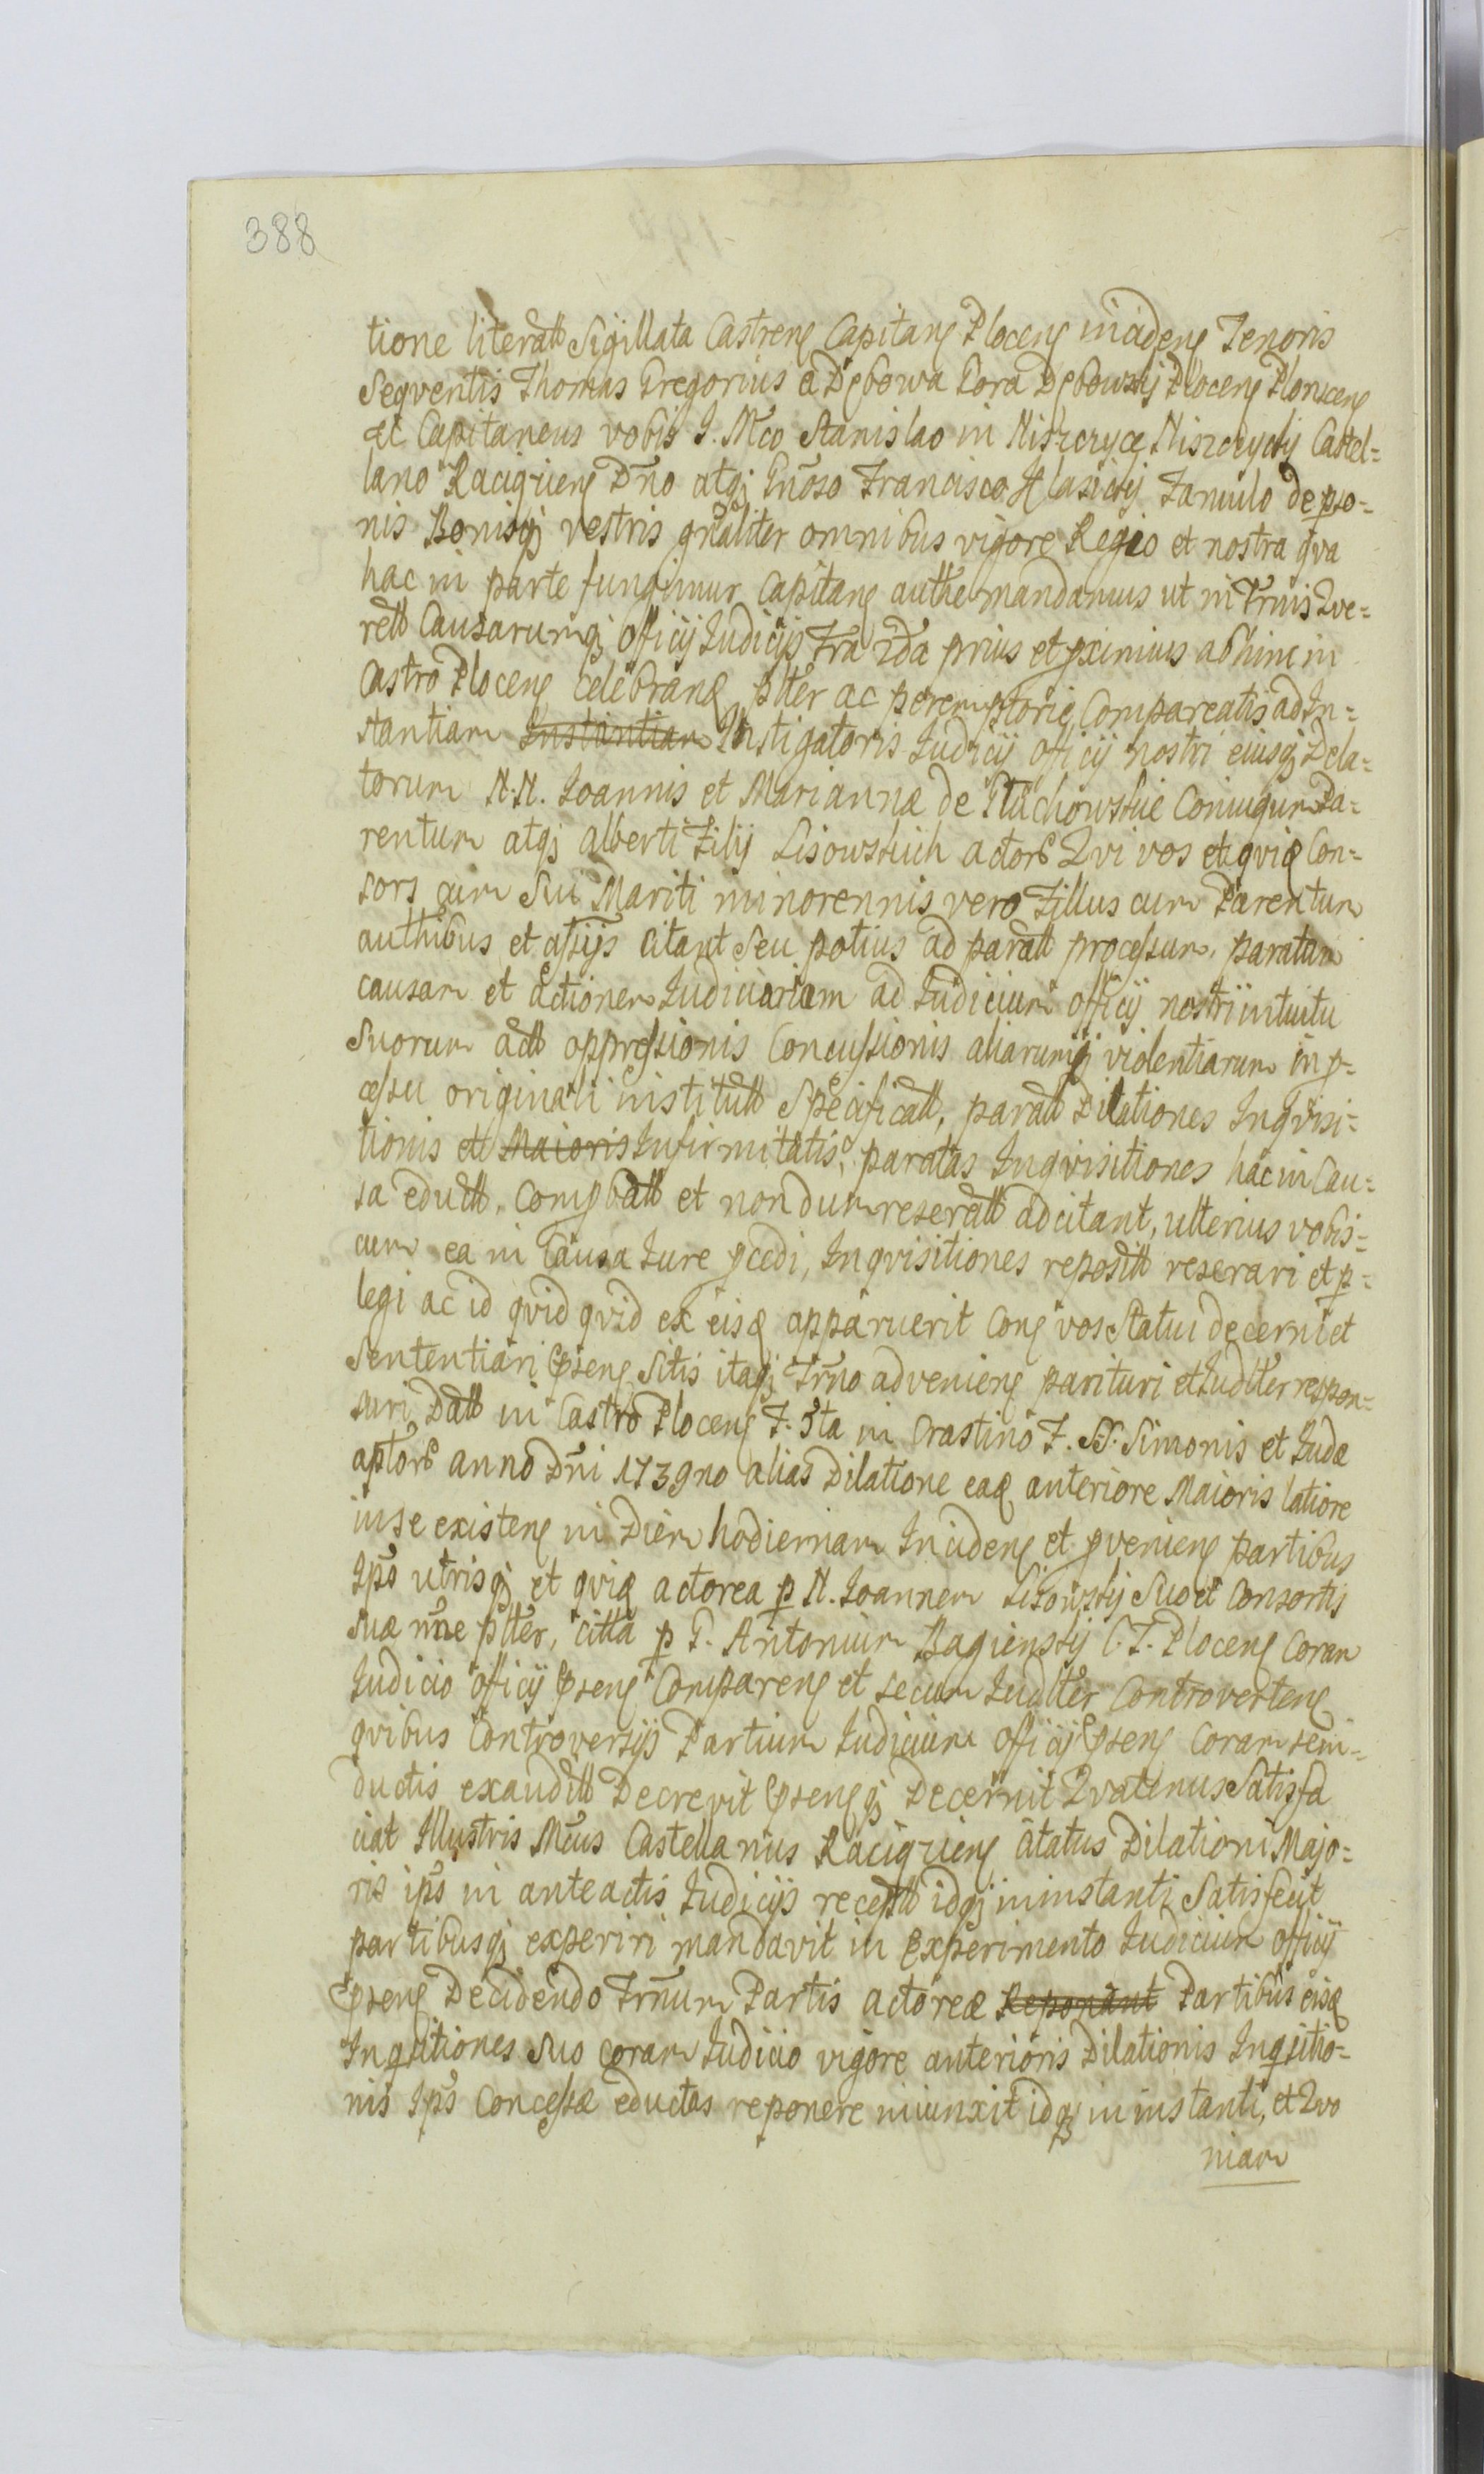 388
tione literatt Sigillata Castrens Capitans Plocens incidens Tenoris
Seqventis Thomas Gregorius a Dębowa Gora Dębowskij Plocens Plonscens
etc Capitaneus vobis J. Mco Stanislao in Niszczyce Niszczycky Castel=
lano Raciąziens Dno atqj Gnoso Francisco Famulo de pso=
nis Bonisqj vestris gnaliter omnibus vigore Regio et nostra qva
hac in parte fungimur Capitans authe mandamus ut in Trnis Qve=
rell Causarumqj Officij Judicijs Fra 2da prius et pximius abhinc in
Castro Plocens Celebrand pltter ac peremptorie Compareatis ad In=
stantiam Instantiam Instigatoris Judicij officij nostri eiusqj Dela=
torum N.N. Joannis et Mariannæ de Stachowskie Coniugum Pa=
rentum atqj Alberti Filij Lisowskich actorb Qvi vos et qvid Con=
sors cum Sui Mariti minorennis vero Filius cum Parentum
authibus et assijs Citant Seu potius ad paratt processum, paratam
causam et actionem Judiciariam ad Judicium officij nostri intuitu
Suorum actt oppressionis Concussionis aliarumqj violentiarum in p=
cessu originali institutt Specificatt, paratt Dilationes Inqvisi=
tionis et Maioris Infirmitatis, paratas Inqvisitiones hac in Cau=
sa eductt, Compbatt et nondum reseratt adcitant, ulterius vobis=
cum ea in Causa Jure pcedi, Inqvisitiones repositt reserari et p=
legi ac id qvid qvid ex eisd apparuerit Cong vos Statui decerni et
Sententiari pseng Sitis itaqj Trno adveniens parituri et Juditer respon=
suri Datt in Castro Plocens F. 5ta in Crastino F. SS. Simonis et Judæ
aptorb anno Dni 1739no alias Dilatione ead anteriore Maioris latiore
in se existens in Diem hodiernam Incidens et pveniens partibus
Ips utrisqj et qvid actorea p N. Joannem Lisowskij Suo et Consortis
suæ nne pltter, citta p G. Antonium Bagienskij C. T. Plocens Coram
Judicio officij pseng Comparens et secum Juditer Controvertens
qvibus Controversijs Partium Judicium officij pseng Coram se in=
ductis exauditt Decrevit psengqj Decernit Qvatenus Satisfa
ciat Illustris Mcus Castellanus Raciązieng citatus Dilationi Majo=
ris ips in anteactis Judicijs recepta idqj in instanti Satisfecit
partibusqj experiri mandavit in Experimento Judicium officij
pseng Decidendo Trnum Partis actoreæ Reponant Partibus eisd
Inqsitiones Suo coram Judicio vigore anterioris Dilationis Inqsitio=
nis Ips Concessæ eductas reponere iniunxit idqj in instanti, et Qvo
niam